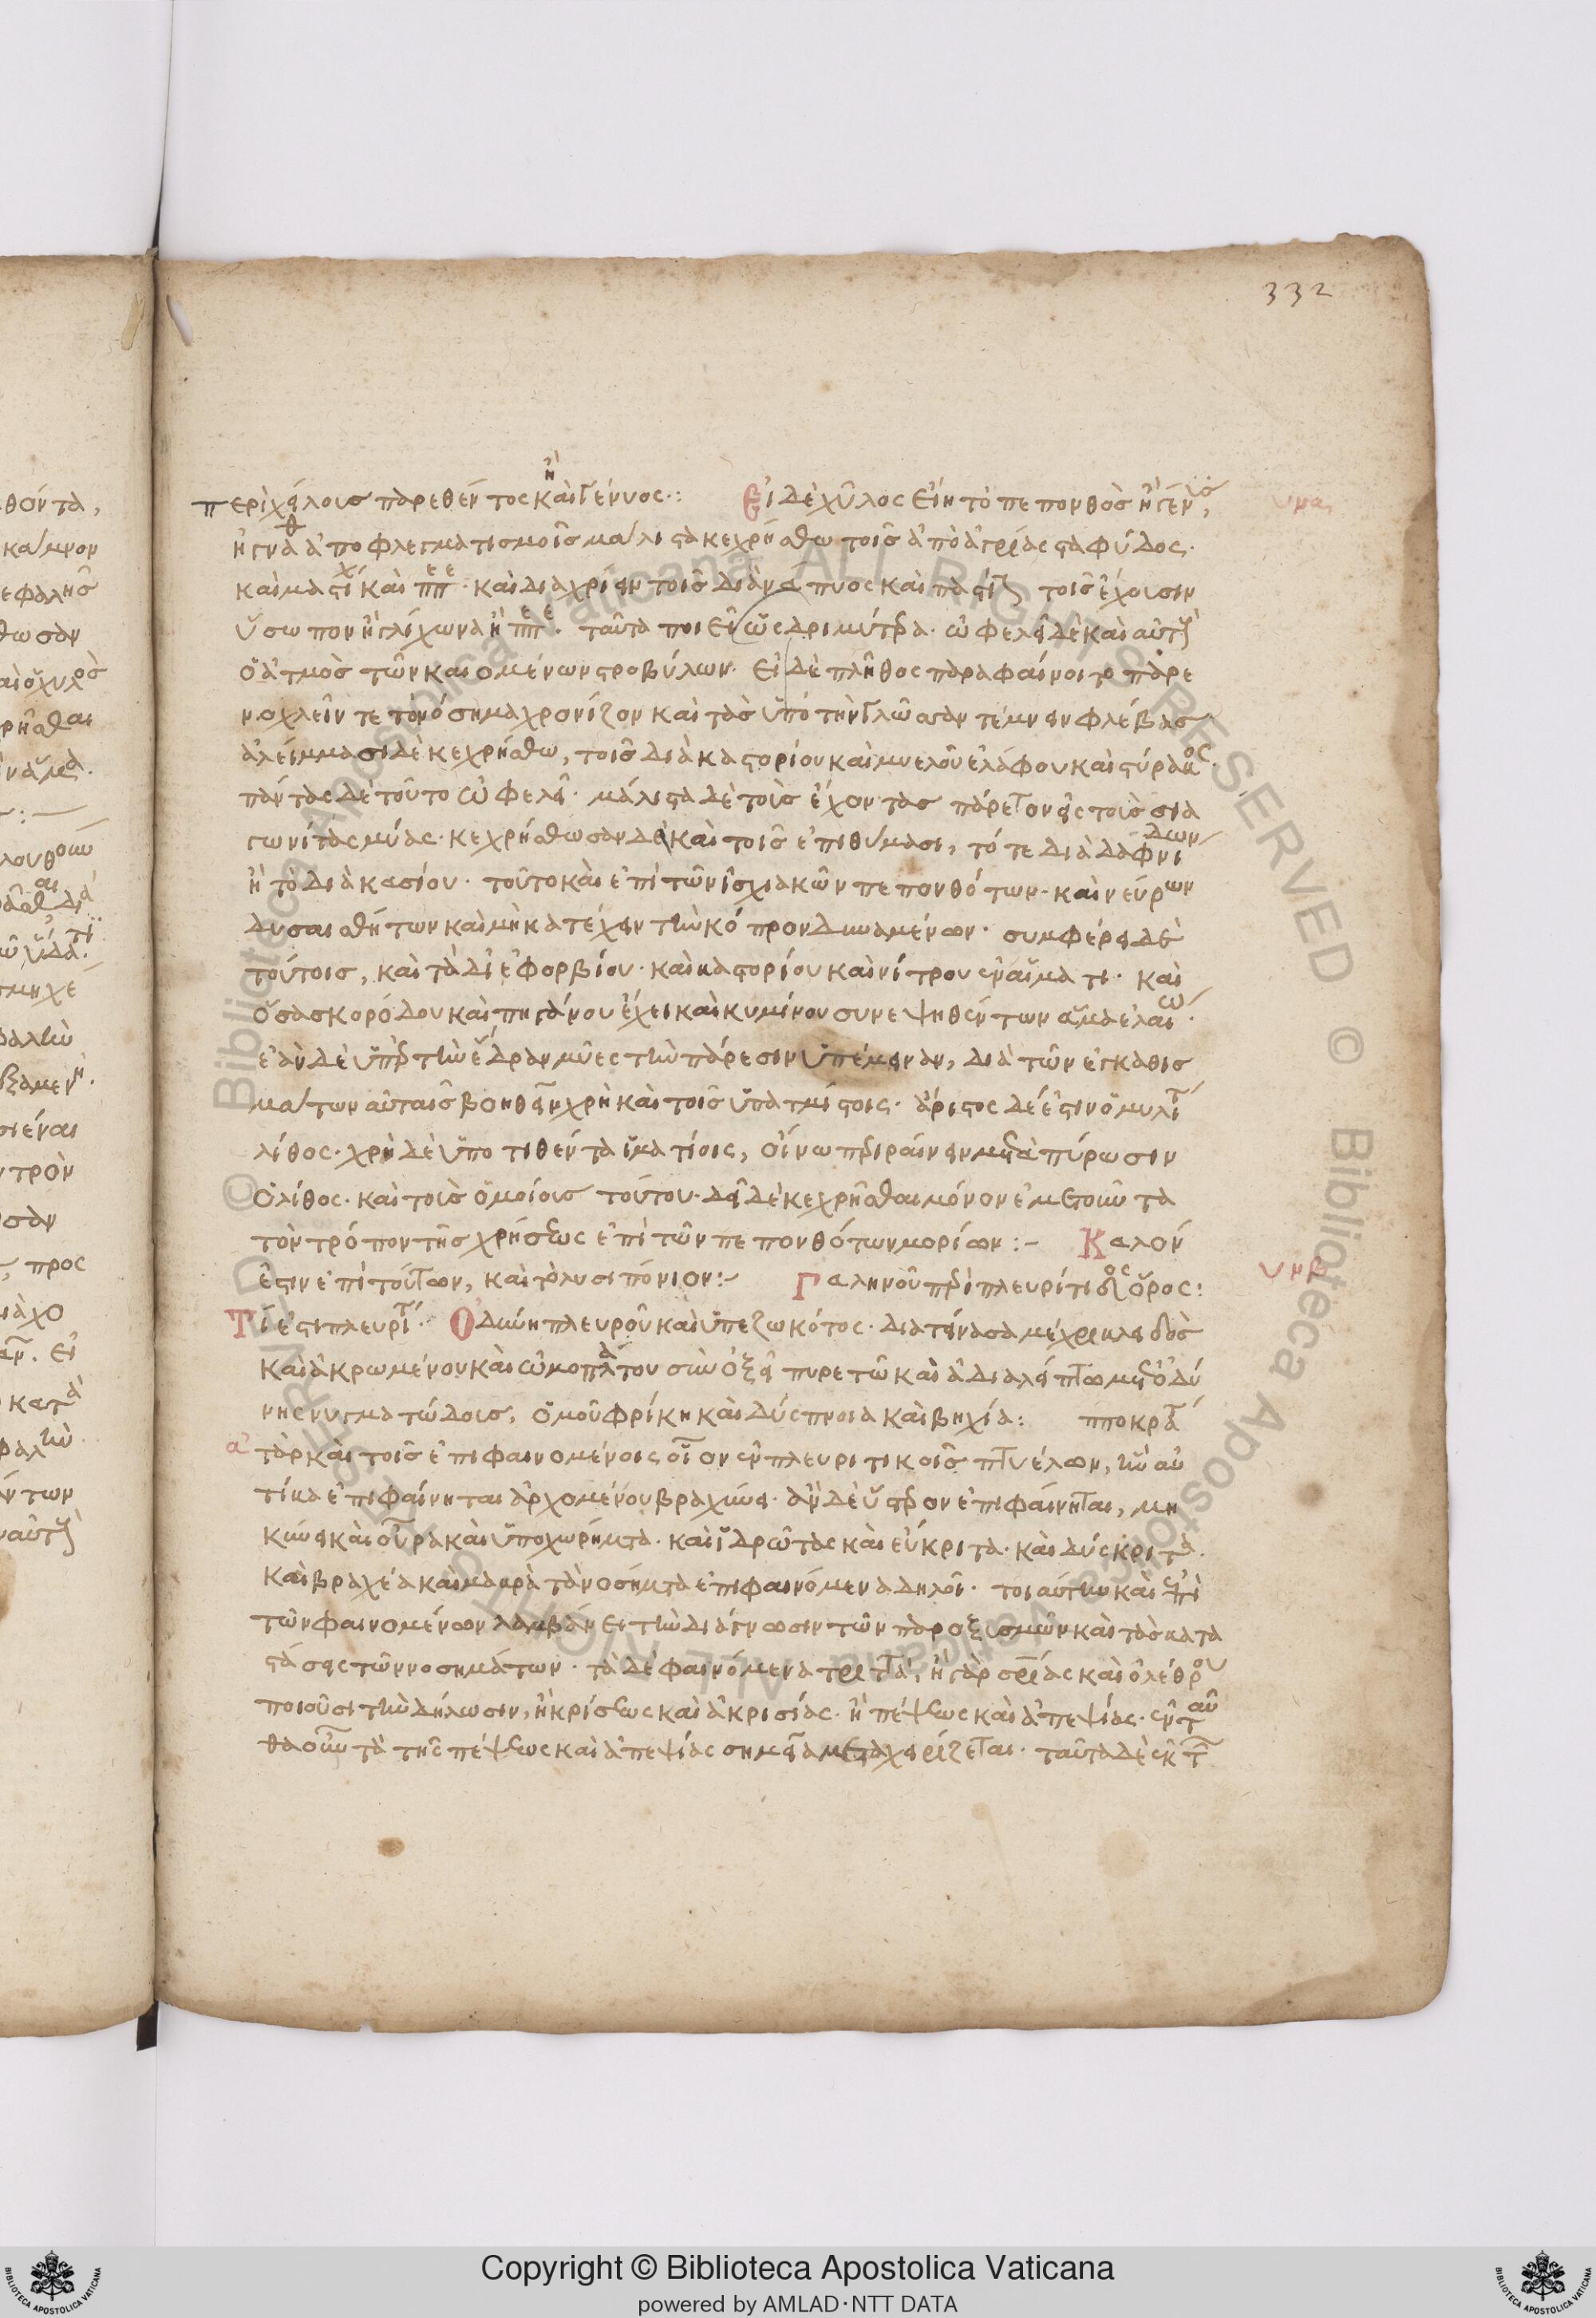 332
περὶ χείλους παρεθέντος καὶ γένυος·: Εἰ δὲ χῦλος εἴη τὸ πεπονθὸς ἢ γένυς,
ἢ γνάθ ἀποφλεγματισμοῖς μάλιστα κεχρήσθω τοῖς ἀπὸ ἀγρίας σταφύδος·
καὶ μαστίχ καὶ πεπε· καὶ διαχρίειν τοῖς διὰ νάπυος καὶ πᾶσι τοῖς ἔχουσιν
ὕσωπον ἢ γλίχωνα ἢ πεπε· ταῦτα ποιεῖ ὡς δριμύτερα· ὠφελεῖ δὲ καὶ αὐτὴ
ὁ ἀτμὸς τῶν καιομένων στροβύλων· εἰ δὲ πλῆθος παραφαίνοιτο παρε
νοχλεῖν τε τὸ νόσημα χρονίζον καὶ τὰς ὑπὸ τὴν γλῶσσαν τέμνειν φλέβας
ἀλείμμασι δὲ κεχρήσθω, τοῖς διὰ καστορίου καὶ μυελοῦ ἐλάφου καὶ στύρακος·
πάντας δὲ τοῦτο ὠφελεῖ· μάλιστα δὲ τοὺς ἔχοντας πάρετον εἰς τοὺς σια
γωνίτας μύας· κεχρήσθωσαν δὲ καὶ τοῖς ἐπιθύμασι, τό τε διὰ δαφνίδων
ἢ τὸ διὰ κασίου· τοῦτο καὶ ἐπὶ τῶν ἰσχιακῶν πεπονθότων· καὶ νεύρων
δυσαισθήτων καὶ μὴ κατέχειν τὴν κόπρον δυναμένων· συμφέρει δὲ
τούτοις, καὶ τὰ δι εὐφορβίου· καὶ καστορίου καὶ νίτρου ἐν αἵματι· καὶ
ὅσα σκορόδου καὶ πηγάνου ἔχει καὶ κυμίνου συνεψηθέντων ἅμα ἐλαίω·
ἐὰν δὲ ὑπὲρ τὴν ἕδραν μῦες τὴν πάρεσιν ὑπέμειναν, διὰ τῶν ἐγκαθισ
μάτων αὐταῖς βοηθεῖν χρὴ καὶ τοῖς ὑπατμίστοις· ἄριστος δέ ἐστιν ὁ μυλίτ
λίθος· χρὴ δὲ ὑποτιθέντα ἱματίοις, οἴνω περιραίνειν μετὰ πύρωσιν
ὁ λίθος· καὶ τοὺς ὁμοίους τούτου· δεῖ δὲ κεχρῆσθαι μόνον ἐμετοῦντα
τὸν τρόπον τῆς χρήσεως ἐπὶ τῶν πεπονθότων μορίων:- Καλόν
ἐστιν ἐπὶ τούτων, καὶ τὸ λυσιπόνιον:- Γαληνοῦ περὶ πλευρίτιδος ὅρος:
Τί ἐστι πλευρῖτ· Ὀδύνη πλευροῦ καὶ ὑπεζωκότος· διατείνασα μέχρι κλειδὸς
καὶ ἀκρωμένου καὶ ὠμοπλάτου σὺν ὀξεῖ πυρετῶ καὶ ἀδιαλείπτω μετ ὀδύ
νης νυγματώδους, ὁμοῦ φρίκη καὶ δύσπνοια καὶ βηχία: πποκράτ
γὰρ καὶ τοῖς ἐπιφαινομένοις οἷον ἐν πλευριτικοῖς πτυέλων, ἢν αὐ
τίκα ἐπιφαίνηται ἀρχομένου βραχύνει· ἂν δὲ ὕστερον ἐπιφαίνηται, μη
κύνει καὶ οὖρα καὶ ὑποχωρήματα· καὶ ἱδρῶτας καὶ εὔκριτα· καὶ δύσκριτα·
καὶ βραχέα καὶ μακρὰ τὰ νοσήματα ἐπιφαινόμενα δηλοῖ· τοιαύτην καὶ ἐπὶ
τῶν φαινομένων λαμβάνει τὴν διάγνωσιν τῶν παροξυσμῶν καὶ τὰς κατα
στάσεις τῶν νοσημάτων· τὰ δὲ φαινόμενα τριττά, ἢ γὰρ σωτηρίας καὶ ὀλέθρου
ποιοῦσι τὴν δήλωσιν, ἢ κρίσεως καὶ ἀκρισίας· ἢ πέψεως καὶ ἀπεψίας· ἐνταῦ
θα οὖν τὰ τῆς πέψεως καὶ ἀπεψίας σημεῖα μεταχειρίζεται· ταῦτα δὲ ἐκ τ